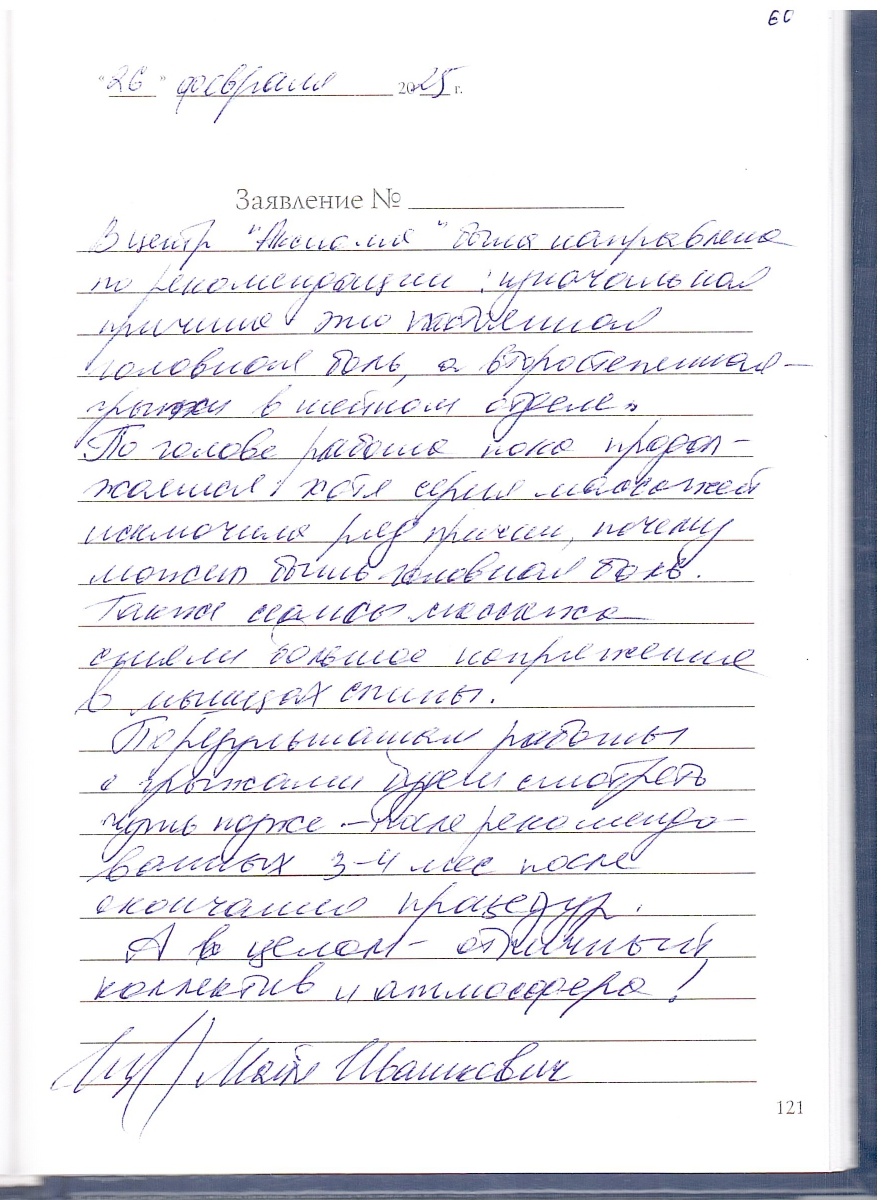 60
"26" февраля 2025 г.
Заявление №
В центр "Аксиома" была направлена
по рекомендации: изначальная
причина это постоянная
головная боль, а второстепенная –
грыжи в шейном отделе.
По голове работа пока продол-
жается, хотя серия массажей
исключила ряд причин, почему
может быть головная боль.
Также сеансы массажа
сняли большое напряжение
в мышцах спины.
По результатам работы
с грыжами будем смотреть
чуть позже – после рекомендо-
ванных 3-4 мес после
окончания процедур.
А в целом – отличный
коллектив и атмосфера!
Ивашкевич
121